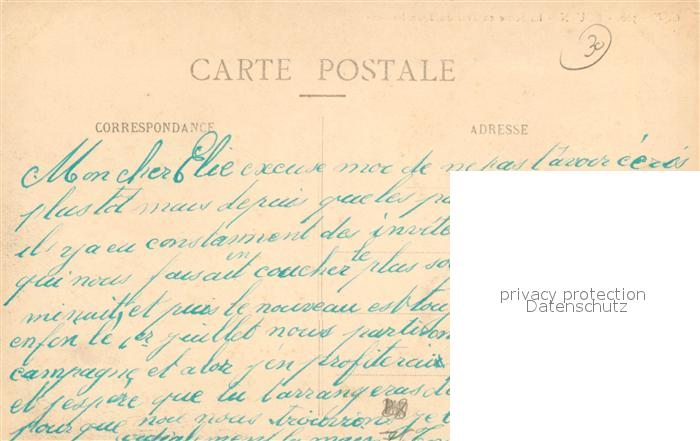 30
CARTE POSTALE
CORRESPONDANCE
ADRESSE
Mon cher Elie excuse moi de ne pas t'avoir écris
plus tôt mais depuis quelques
il y a eu constamment des invité
qui nous faisait coucher le plus
minuit, et puis le nouveau est
enfin le 1er juillet nous partiron
campagne et alor j'en profiterai
et j'espère que tu t'arrangeras de
pour que nous nous
cordialement la main
privacy protection
Datenschutz